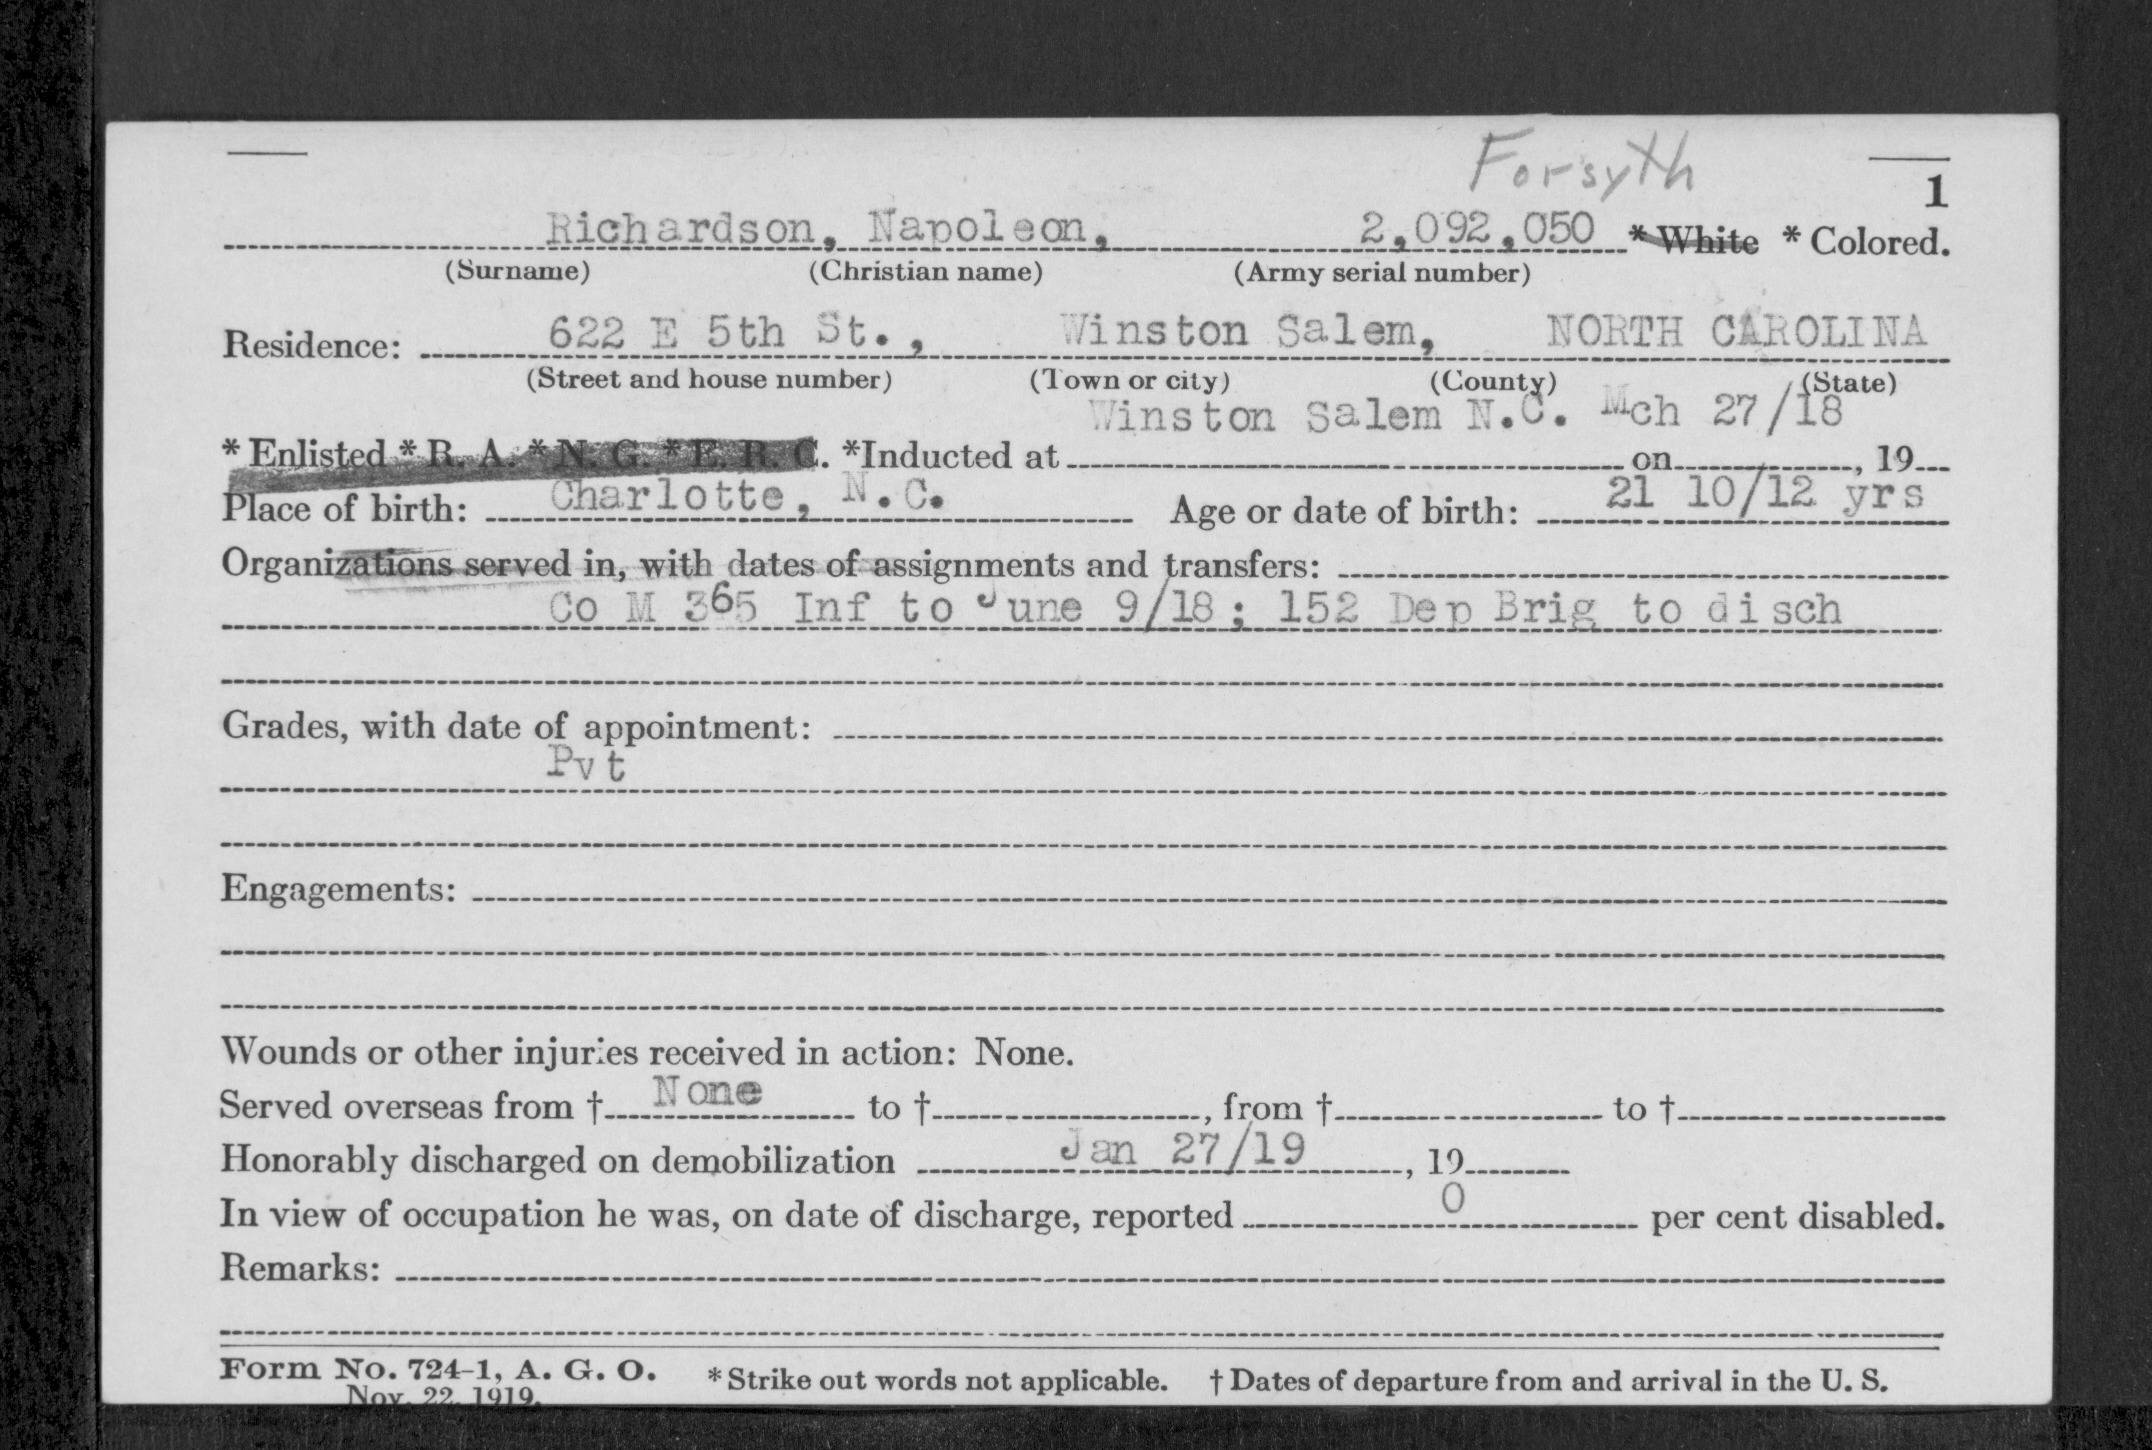 Forsyth
1
Richardson, Napoleon, 2,092,050 * White * Colored.
(Surname) (Christian name) (Army serial number)
Residence: 622 E 5th St., Winston Salem, NORTH CAROLINA
(Street and house number) (Town or city) (County) (State)
Winston Salem N.C. Mch 27/18
* Enlisted * R. A. * N. G. * E. R. C. *Inducted at on , 19
Place of birth: Charlotte, N.C. Age or date of birth: 21 10/12 yrs
Organizations served in, with dates of assignments and transfers:
Co M 365 Inf to June 9/18; 152 Dep Brig to disch
Grades, with date of appointment:
Pvt
Engagements:
Wounds or other injuries received in action: None.
Served overseas from † None to † , from † to †
Honorably discharged on demobilization Jan 27/19 , 19
In view of occupation he was, on date of discharge, reported 0 per cent disabled.
Remarks:
Form No. 724-1, A. G. O. * Strike out words not applicable. † Dates of departure from and arrival in the U. S.
Nov. 22, 1919.